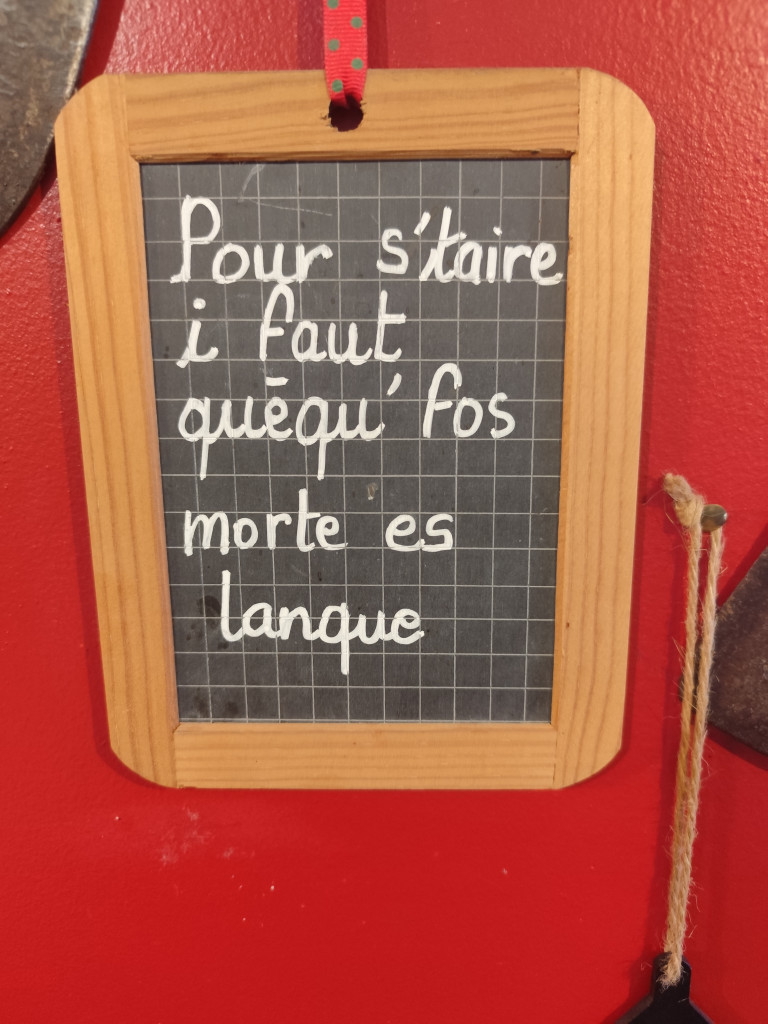 Pour s'taire
i faut
quēqu' fos
morte es
lanque